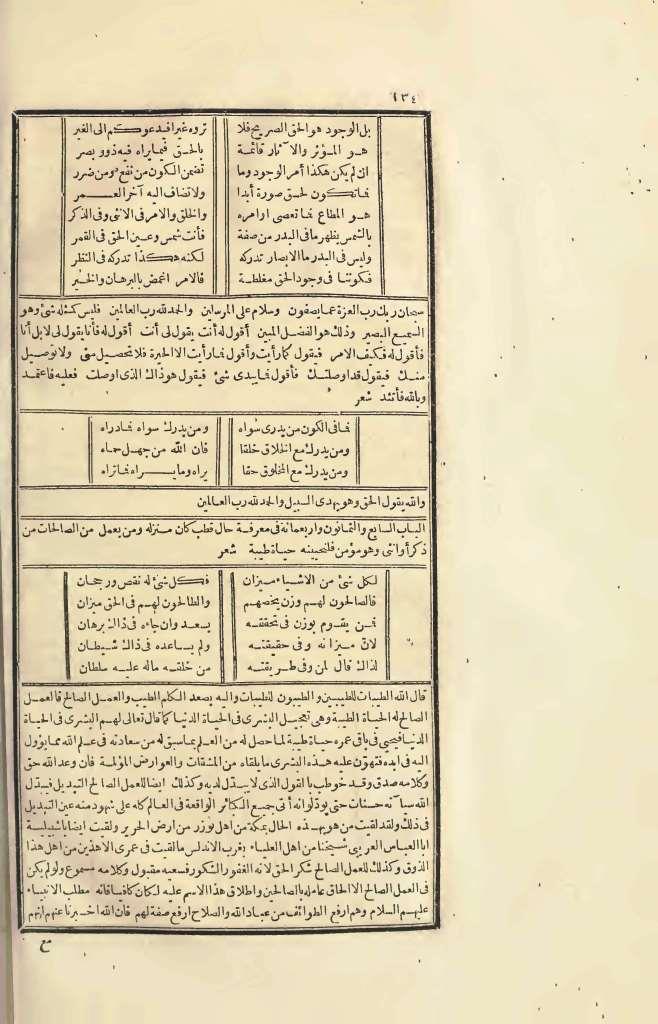 ١٣٤
بل الوجود هو الحق الصريح فلا تروه غيرا فيدعوكم الى الغير
هو المؤثر والآثار قائمة بالحق فيما يراه فيه ذوو بصر
ان لم يكن هكذا أمر الوجود وما تضمن الكون من نفع ومن ضرر
فما تكون لحق صورة أبدا ولا تضاف اليه آخر العمر
هو المطاع فما تعصى اوامره والخلق والامر فى الانثى وفى الذكر
بالشمس يظهر ما فى البدر من صفة فأنت شمس وعين الحق فى القمر
وليس فى البدر ما الابصار تدركه لكنه هكذا تدركه فى النظر
فكوننا فى وجود الحق مغلطة فالامر اغمض بالبرهان والخبر
سبحان ربك رب العزة عما يصفون وسلام على المرسلين والحمد لله رب العالمين فليس كمثله شئ وهو
السميع البصير وذلك هو الفضل المبين أقول له أنت يقول لى أنت أقول له فأنا يقول لى لا بل أنا
فأقول له فكيف الامر فيقول كما رأيت وأقول فما رأيت الا الحيرة فلا تحصيل منى ولا توصيل
منك فيقول قد اوصلتك فأقول فما بيدى شئ فيقول هو ذاك الذى اوصلت فعليه فاعتمد
وبالله فأتئد شعر
فما فى الكون من يدرى سواه ومن يدرك سواه فما دراه
ومن يدرك مع الخلاق خلقا فان الله من جهل حماه
ومن يدرك مع المخلوق حقا يراه وما يراه فما تراه
والله يقول الحق وهو يهدى السبيل والحمد لله رب العالمين
الباب السابع والثمانون واربعمائة فى معرفة حال قطب كان منزله ومن يعمل من الصالحات من
ذكر أو انثى وهو مؤمن فلنحيينه حياة طيبة شعر
لكل شئ من الاشياء ميزان فكل شئ له نقص ورجحان
فالصالحون لهم وزن يخصهم والطالحون لهم فى الحق ميزان
فمن يقوم بوزن فى تحققه يسعد وان جاءه فى ذاك برهان
لان ميزانه وفى حقيقته ولم يساعده فى ذاك شيطان
لذاك قال لمن وفى طريقته من خلقه ماله عليه سلطان
قال الله الطيبات للطيبين والطيبون للطيبات واليه يصعد الكلم الطيب والعمل الصالح فالعمل
الصالح له الحياة الطيبة وهى تعجيل البشرى فى الحياة الدنيا كما قال تعالى لهم البشرى فى الحياة
الدنيا فيحيى فى باقى عمره حياة طيبة لما حصل له من العلم بما سبق له من سعادته فى علم الله مما يؤول
اليه فى ابده فتهون عليه هذه البشرى ما يلقاه من المشقات والعوارض المؤلمة فان وعد الله حق
وكلامه صدق وقد خوطب بالقول الذى لا يبدل لديه وكذلك ايضا للعمل الصالح التبديل فيبدل
الله سيآته حسنات حتى يود لو انه أتى جميع الكبائر الواقعة فى العالم كله على شهود منه عين التبديل
فى ذلك ولقد لقيت من هو بهذه الحال بمكة من اهل توزر من ارض الجريد ولقيت ايضا باشبيلية
ابا العباس العريبى شيخنا من اهل العلياء بغرب الاندلس ما لقيت فى عمرى الا هذين من اهل هذا
الذوق وكذلك للعمل الصالح شكر الحق لانه الغفور الشكور فسعيه مقبول وكلامه مسموع ولو لم يكن
فى العمل الصالح الا الحاق عامله بالصالحين واطلاق هذا الاسم عليه لكان كافيا فانه مطلب الانبياء
عليهم السلام وهم ارفع الطوائف من عباد الله والصلاح ارفع صفة لهم فان الله اخبرنا عنهم انهم
مع